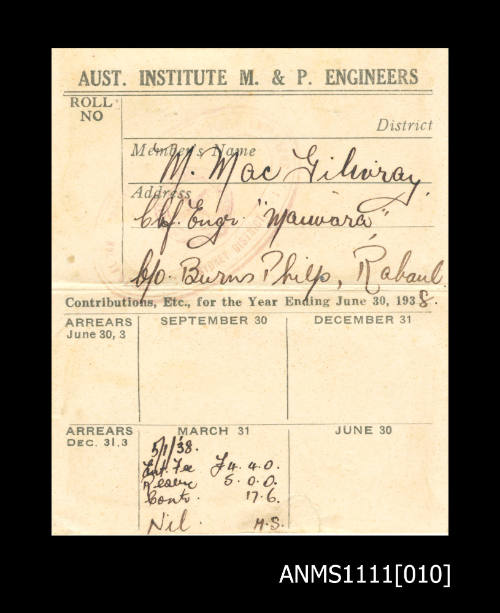 AUST. INSTITUTE M. & P. ENGINEERS
ROLL NO
District
Member's Name
M. Mac Gilvray.
Address
Chf. Engr. "Mauwara"
c/o. Burns Philp, Rabaul.
Contributions, Etc., for the Year Ending June 30, 1938.
ARREARS June 30, 3
SEPTEMBER 30
DECEMBER 31
ARREARS DEC. 31, 3
MARCH 31
JUNE 30
5/1/38.
Ent. Fee £4. 4. 0.
5. 0. 0.
Contr. 17. 6.
Nil. H.S.
ANMS1111[010]